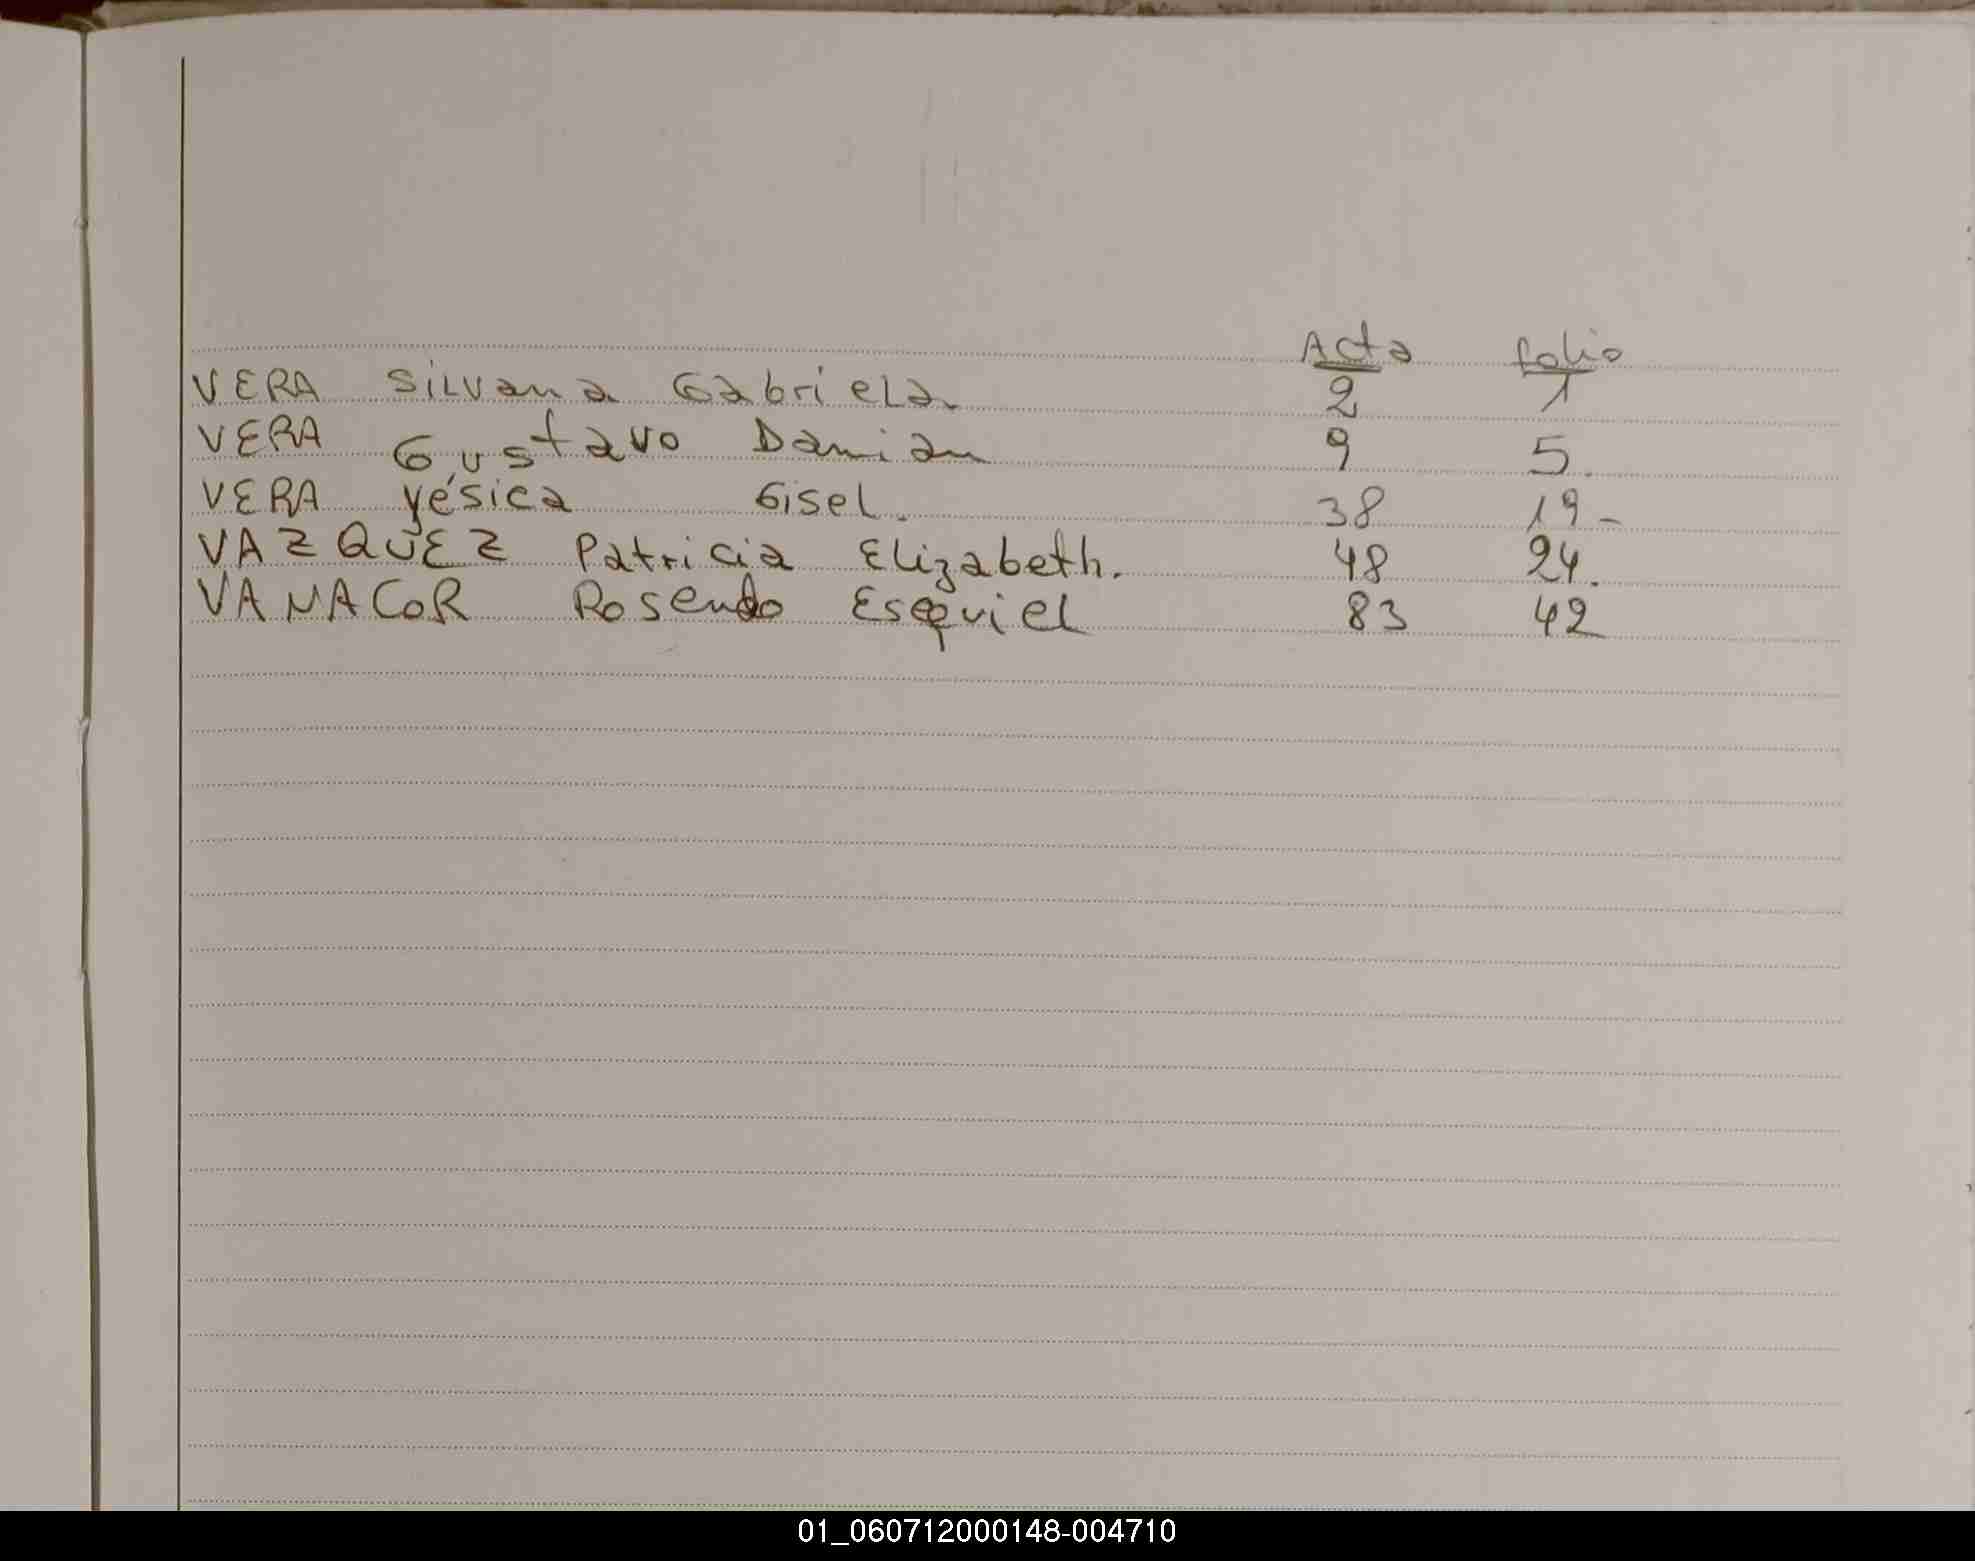 Acta folio
VERA Silvana Gabriela 2 1
VERA Gustavo Damian 9 5.
VERA Yésica Gisel. 38 19-
VAZQUEZ Patricia Elizabeth. 48 24.
VANACOR Rosendo Esequiel 83 42
01_060712000148-004710